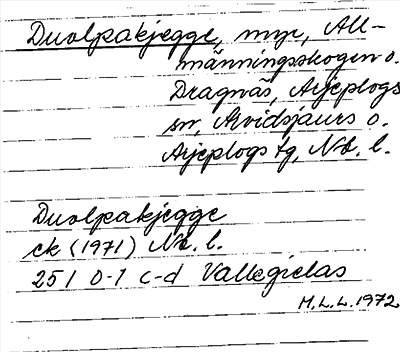 Duolpakjegge, myr, All-
männingsskogen o.
Dragnäs, Arjeplogs
sn, Arvidsjaurs o.
Arjeplogs tg, Nb. l.
Duolpakjegge
ek (1971) Nb. l.
25 I 0-1 c-d Vallegielas
M.L.L. 1972